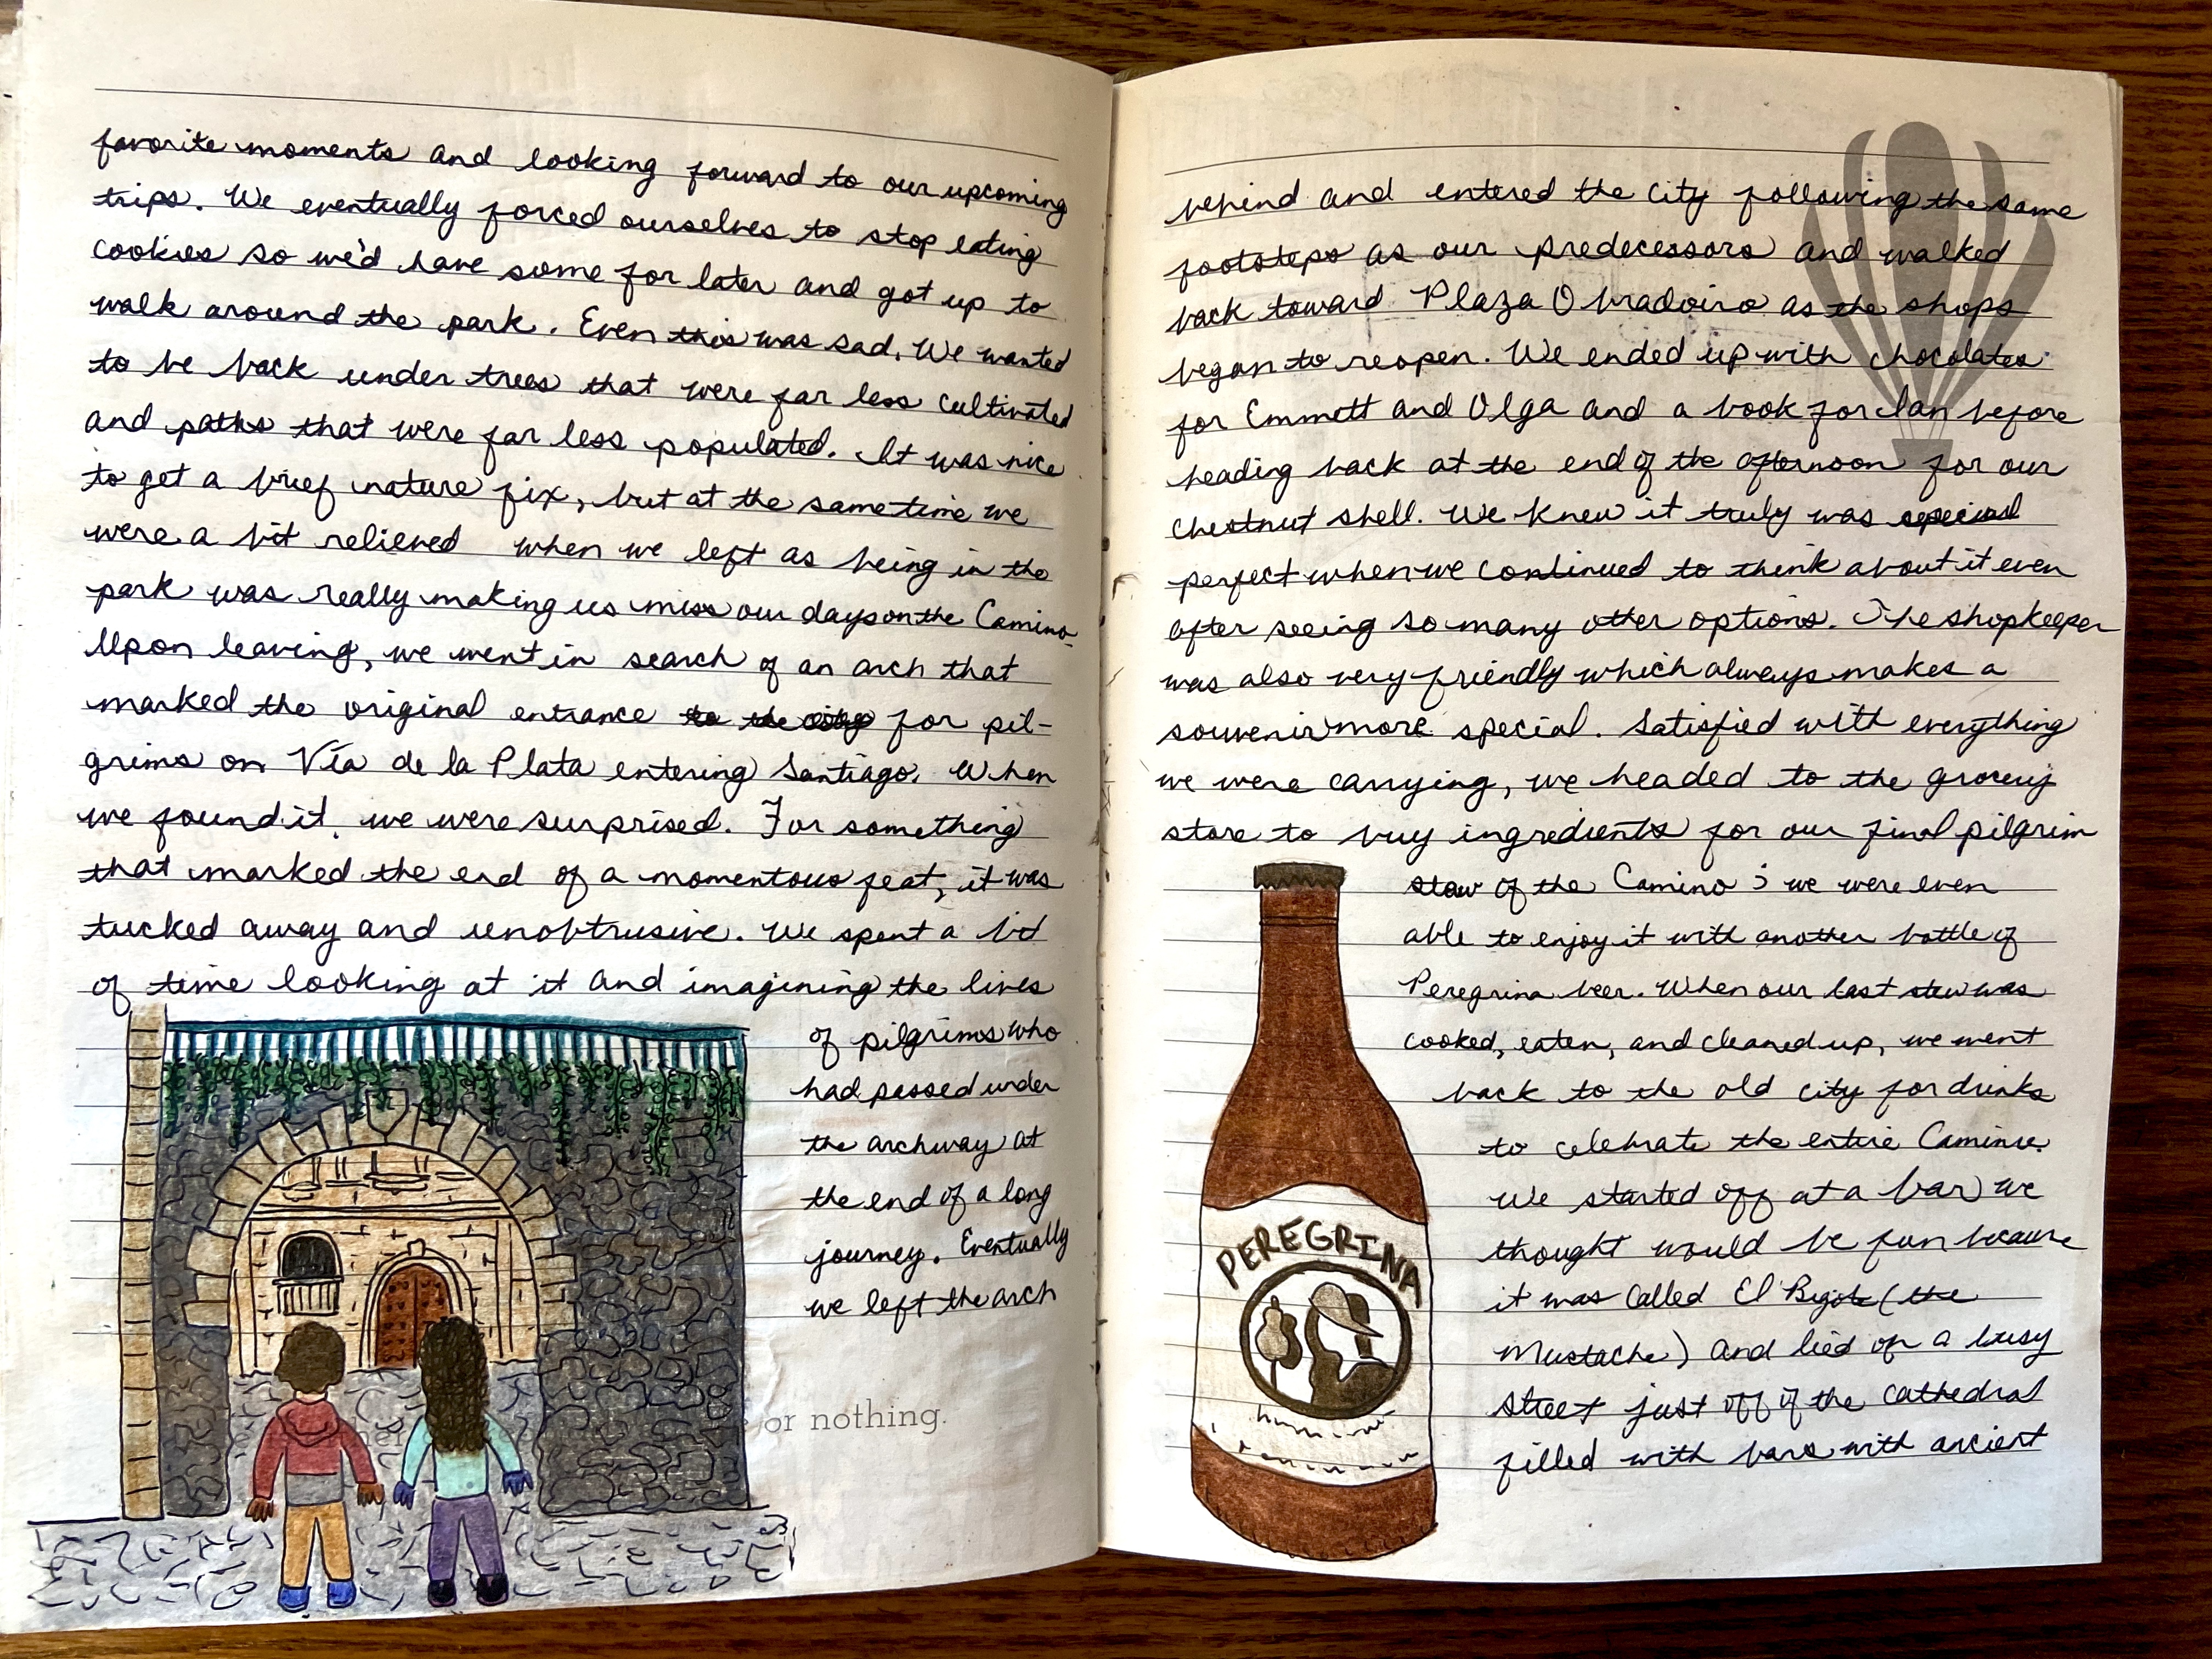 favorite moments and looking forward to our upcoming
trips. We eventually forced ourselves to stop eating
cookies so we'd have some for later and got up to
walk around the park. Even this was sad. We wanted
to be back under trees that were far less cultivated
and paths that were far less populated. It was nice
to get a brief nature fix, but at the same time we
were a bit relieved when we left as being in the
park was really making us miss our days on the Camino.
Upon leaving, we went in search of an arch that
marked the original entrance to the city for pil-
grims on Vía de la Plata entering Santiago. When
we found it, we were surprised. For something
that marked the end of a momentous feat, it was
tucked away and unobtrusive. We spent a bit
of time looking at it and imagining the lives
of pilgrims who
had passed under
the archway at
the end of a long
journey. Eventually
we left the arch
or nothing.
behind and entered the city following the same
footsteps as our predecessors and walked
back toward Plaza Obradoiro as the shops
began to reopen. We ended up with chocolates
for Emmett and Olga and a book for Ian before
heading back at the end of the afternoon for our
chestnut shell. We knew it truly was special
perfect when we continued to think about it even
after seeing so many other options. The shopkeeper
was also very friendly which always makes a
souvenir more special. Satisfied with everything
we were carrying, we headed to the grocery
store to buy ingredients for our final pilgrim
stew of the Camino; we were even
able to enjoy it with another bottle of
Peregrina beer. When our last stew was
cooked, eaten, and cleaned up, we went
back to the old city for drinks
to celebrate the entire Camino.
We started off at a bar we
thought would be fun because
it was called El Bigote (the
Mustache) and lied on a busy
street just off of the cathedral
filled with bars with ancient
PEREGRINA